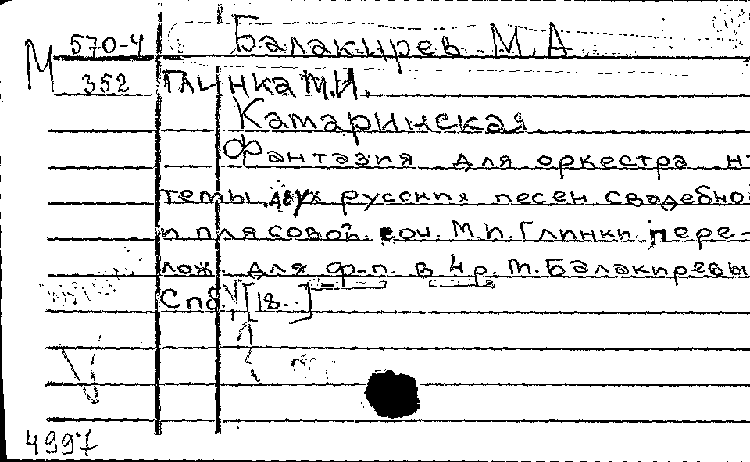 М 570-4 Балакирев М.А
352 Глинка М.И.
Камаринская
Фантазия для оркестра н
темы двух русских песен свадебной
и плясовой. соч. М.И. Глинки. пере-
лож. для ф-п. в 4 р. М. Балакиревы
Спб, [18..]
4997